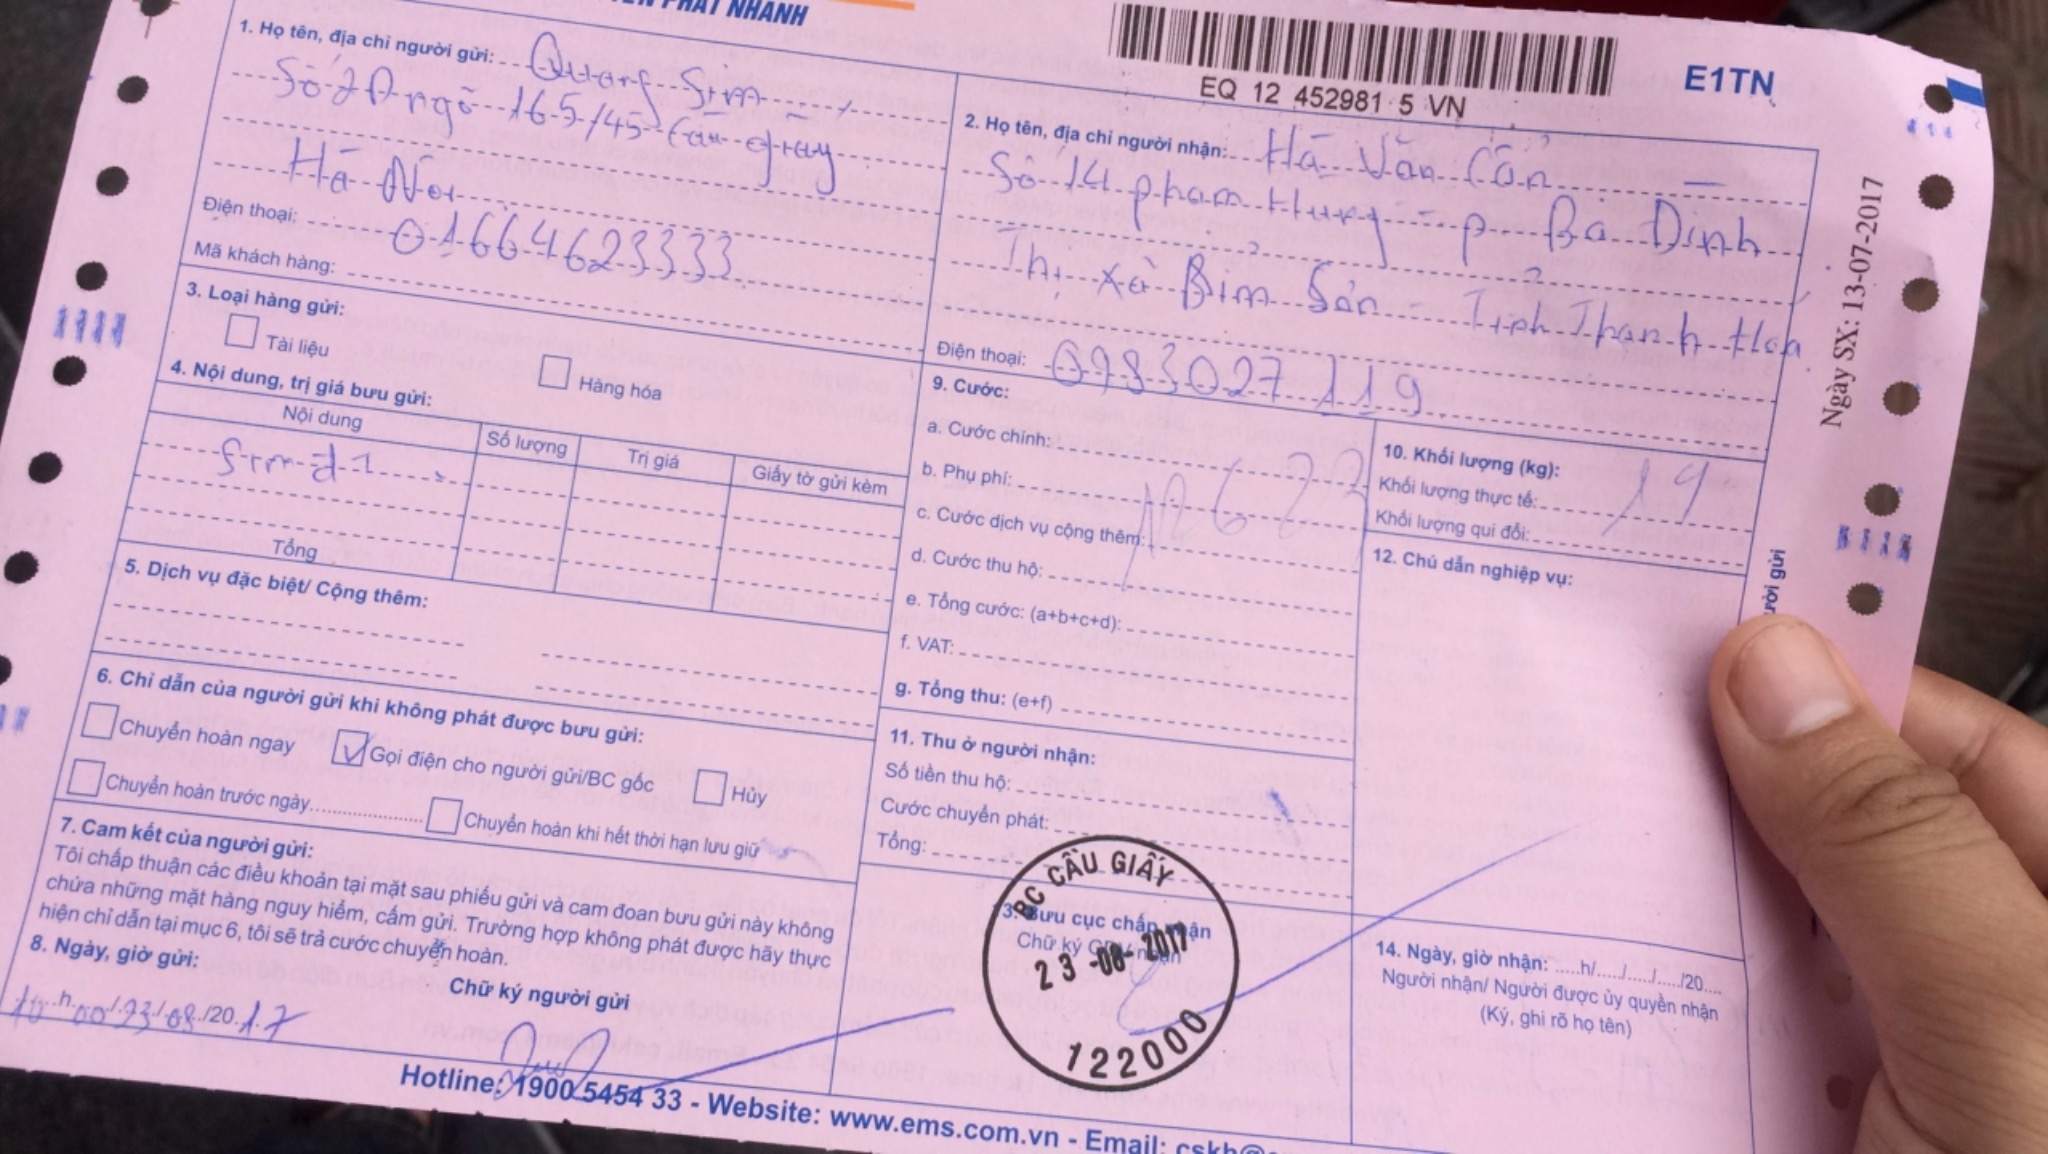 PHÁT NHANH
EQ 12 452981 5 VN
E1TN
1. Họ tên, địa chỉ người gửi: Quang Sim
Số 2 ngõ 165/45 Cầu giấy
Hà Nội
Điện thoại: 01664623333
Mã khách hàng:
2. Họ tên, địa chỉ người nhận: Hà Văn Cẩn
Số 14 phạm Hùng - p Ba Đình
Thị xã Bỉm Sơn - Tỉnh Thanh Hoá
Điện thoại: 0983027119
3. Loại hàng gửi:
Tài liệu
Hàng hóa
4. Nội dung, trị giá bưu gửi:
Nội dung
Số lượng
Trị giá
Giấy tờ gửi kèm
Sim
Tổng
5. Dịch vụ đặc biệt/ Cộng thêm:
6. Chỉ dẫn của người gửi khi không phát được bưu gửi:
Chuyển hoàn ngay
Gọi điện cho người gửi/BC gốc
Hủy
Chuyển hoàn trước ngày
Chuyển hoàn khi hết thời hạn lưu giữ
7. Cam kết của người gửi:
Tôi chấp thuận các điều khoản tại mặt sau phiếu gửi và cam đoan bưu gửi này không
chứa những mặt hàng nguy hiểm, cấm gửi. Trường hợp không phát được hãy thực
hiện chỉ dẫn tại mục 6, tôi sẽ trả cước chuyển hoàn.
8. Ngày, giờ gửi:
10 h 00/23/08/2017
Chữ ký người gửi
9. Cước:
a. Cước chính:
b. Phụ phí:
c. Cước dịch vụ cộng thêm:
d. Cước thu hộ:
e. Tổng cước: (a+b+c+d):
f. VAT:
g. Tổng thu: (e+f)
10. Khối lượng (kg):
Khối lượng thực tế:
Khối lượng qui đổi:
19
11. Thu ở người nhận:
Số tiền thu hộ:
Cước chuyển phát:
Tổng:
12. Chú dẫn nghiệp vụ:
13. Bưu cục chấp nhận
Chữ ký GDV nhận
BC CẦU GIẤY
23-08-2017
122000
14. Ngày, giờ nhận: .....h/...../...../...../20....
Người nhận/ Người được ủy quyền nhận
(Ký, ghi rõ họ tên)
Ngày SX: 13-07-2017
gửi
Hotline: 1900 5454 33 - Website: www.ems.com.vn - Email: cskh@